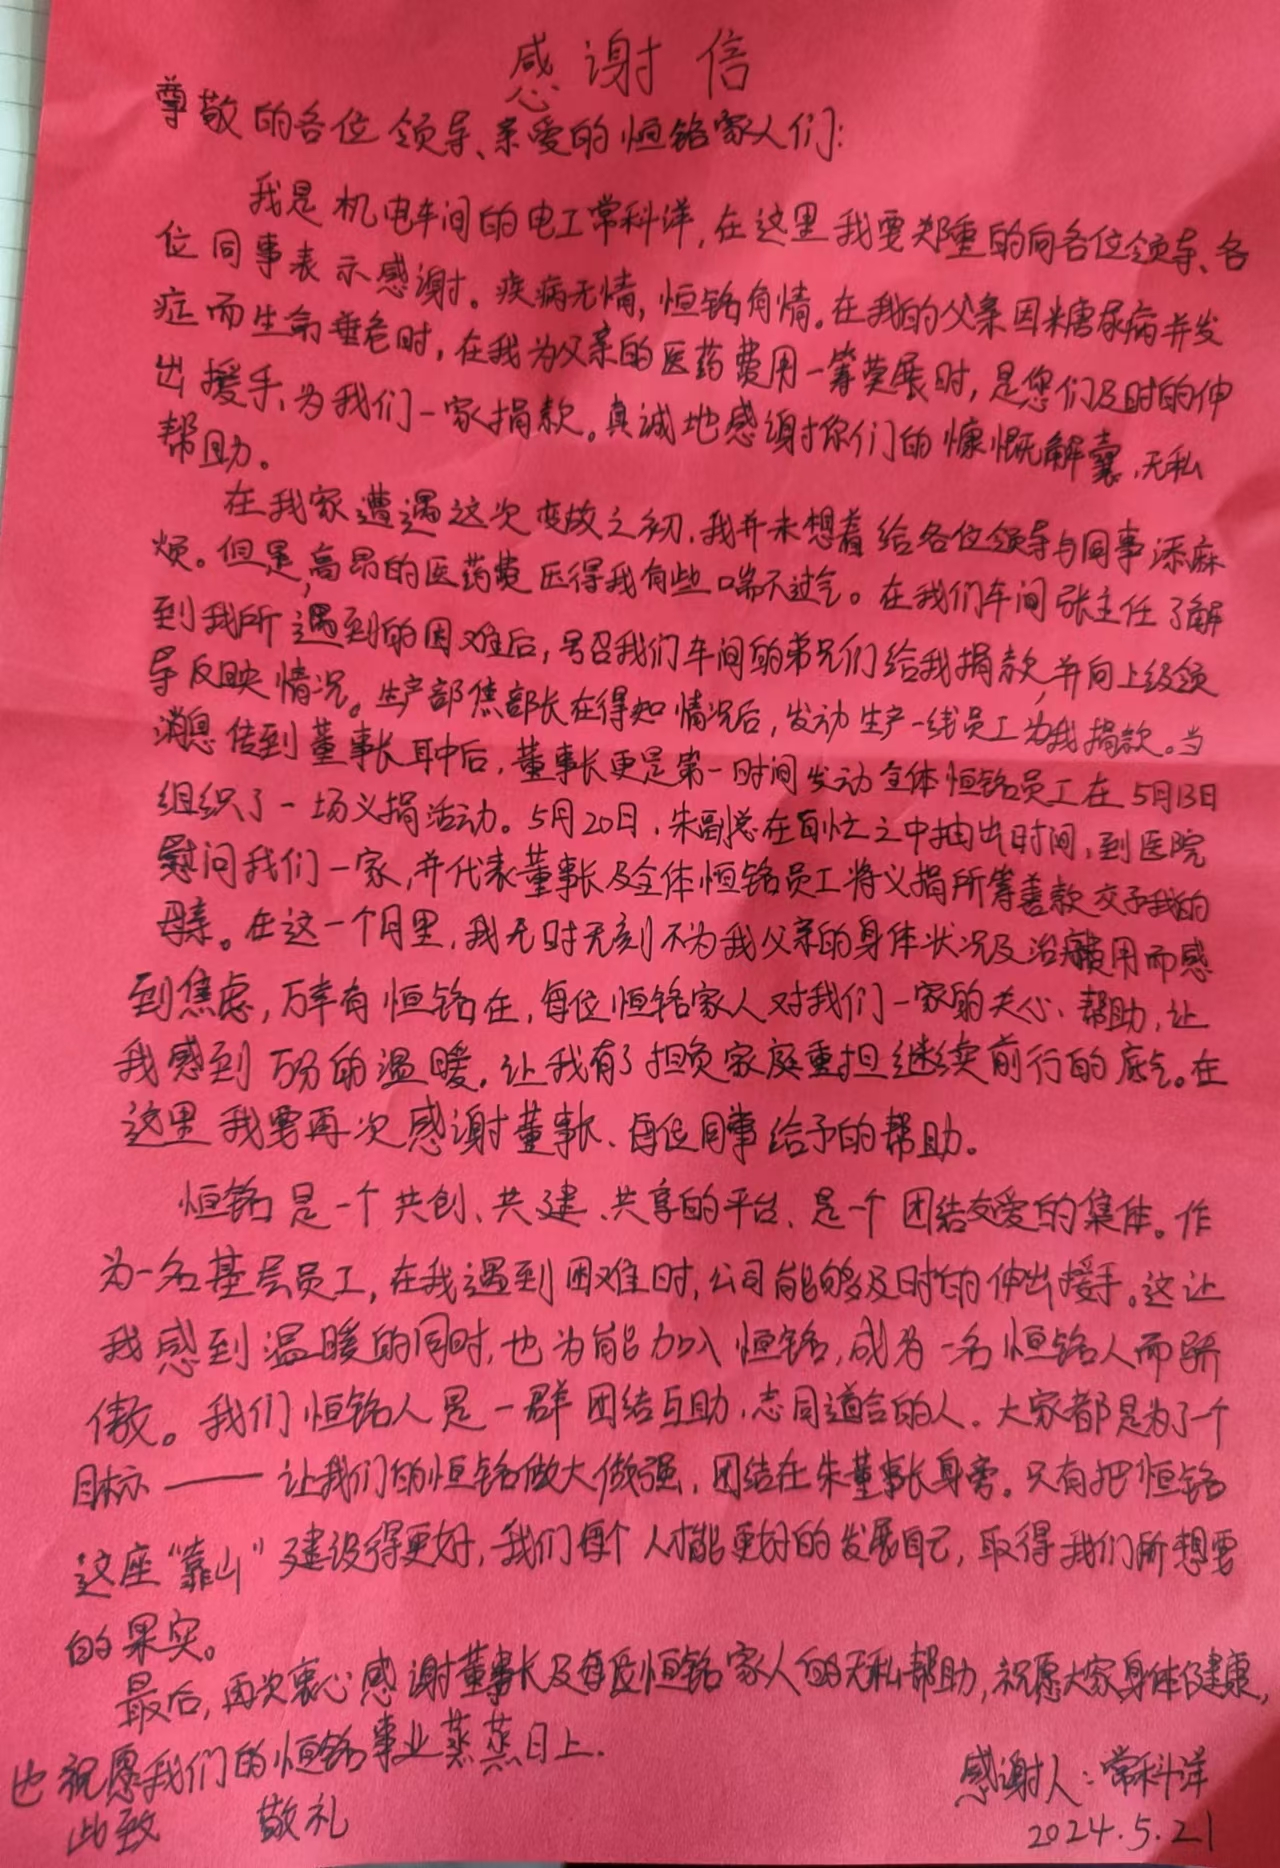 感谢信
尊敬的各位领导、亲爱的恒铭家人们:
我是机电车间的电工常科洋,在这里我要郑重的向各位领导、各
位同事表示感谢。疾病无情,恒铭有情。在我的父亲因糖尿病并发
症而生命垂危时,在我为父亲的医药费用一筹莫展时,是您们及时的伸
出援手、为我们一家捐款。真诚地感谢你们的慷慨解囊、无私
帮助。
在我家遭遇这次变故之初,我并未想着给各位领导与同事添麻
烦。但是,高昂的医药费压得我有些喘不过气。在我们车间张主任了解
到我所遇到的困难后,号召我们车间的弟兄们给我捐款,并向上级领
导反映情况。生产部焦部长在得知情况后,发动生产一线员工为我捐款。当
消息传到董事长耳中后,董事长更是第一时间发动全体恒铭员工在5月13日
组织了一场义捐活动。5月20日,朱副总在百忙之中抽出时间,到医院
慰问我们一家,并代表董事长及全体恒铭员工将义捐所筹善款交予我的
母亲。在这一个月里,我无时无刻不为我父亲的身体状况及治疗费用而感
到焦虑,万幸有恒铭在,每位恒铭家人对我们一家的关心、帮助,让
我感到万分的温暖。让我有了担负家庭重担继续前行的底气。在
这里我要再次感谢董事长、每位同事给予的帮助。
恒铭是一个共创、共建、共享的平台、是一个团结友爱的集体。作
为一名基层员工,在我遇到困难时,公司能够及时的伸出援手。这让
我感到温暖的同时,也为能加入恒铭,成为一名恒铭人而骄
傲。我们恒铭人是一群团结互助,志同道合的人。大家都是为了一个
目标——让我们的恒铭做大做强,团结在朱董事长身旁。只有把恒铭
这座“靠山”建设得更好,我们每个人才能更好的发展自己,取得我们所想要
的果实。
最后,再次衷心感谢董事长及每位恒铭家人的无私帮助,祝愿大家身体健康,
也祝愿我们的恒铭事业蒸蒸日上.
此致 敬礼
感谢人:常科洋
2024.5.21